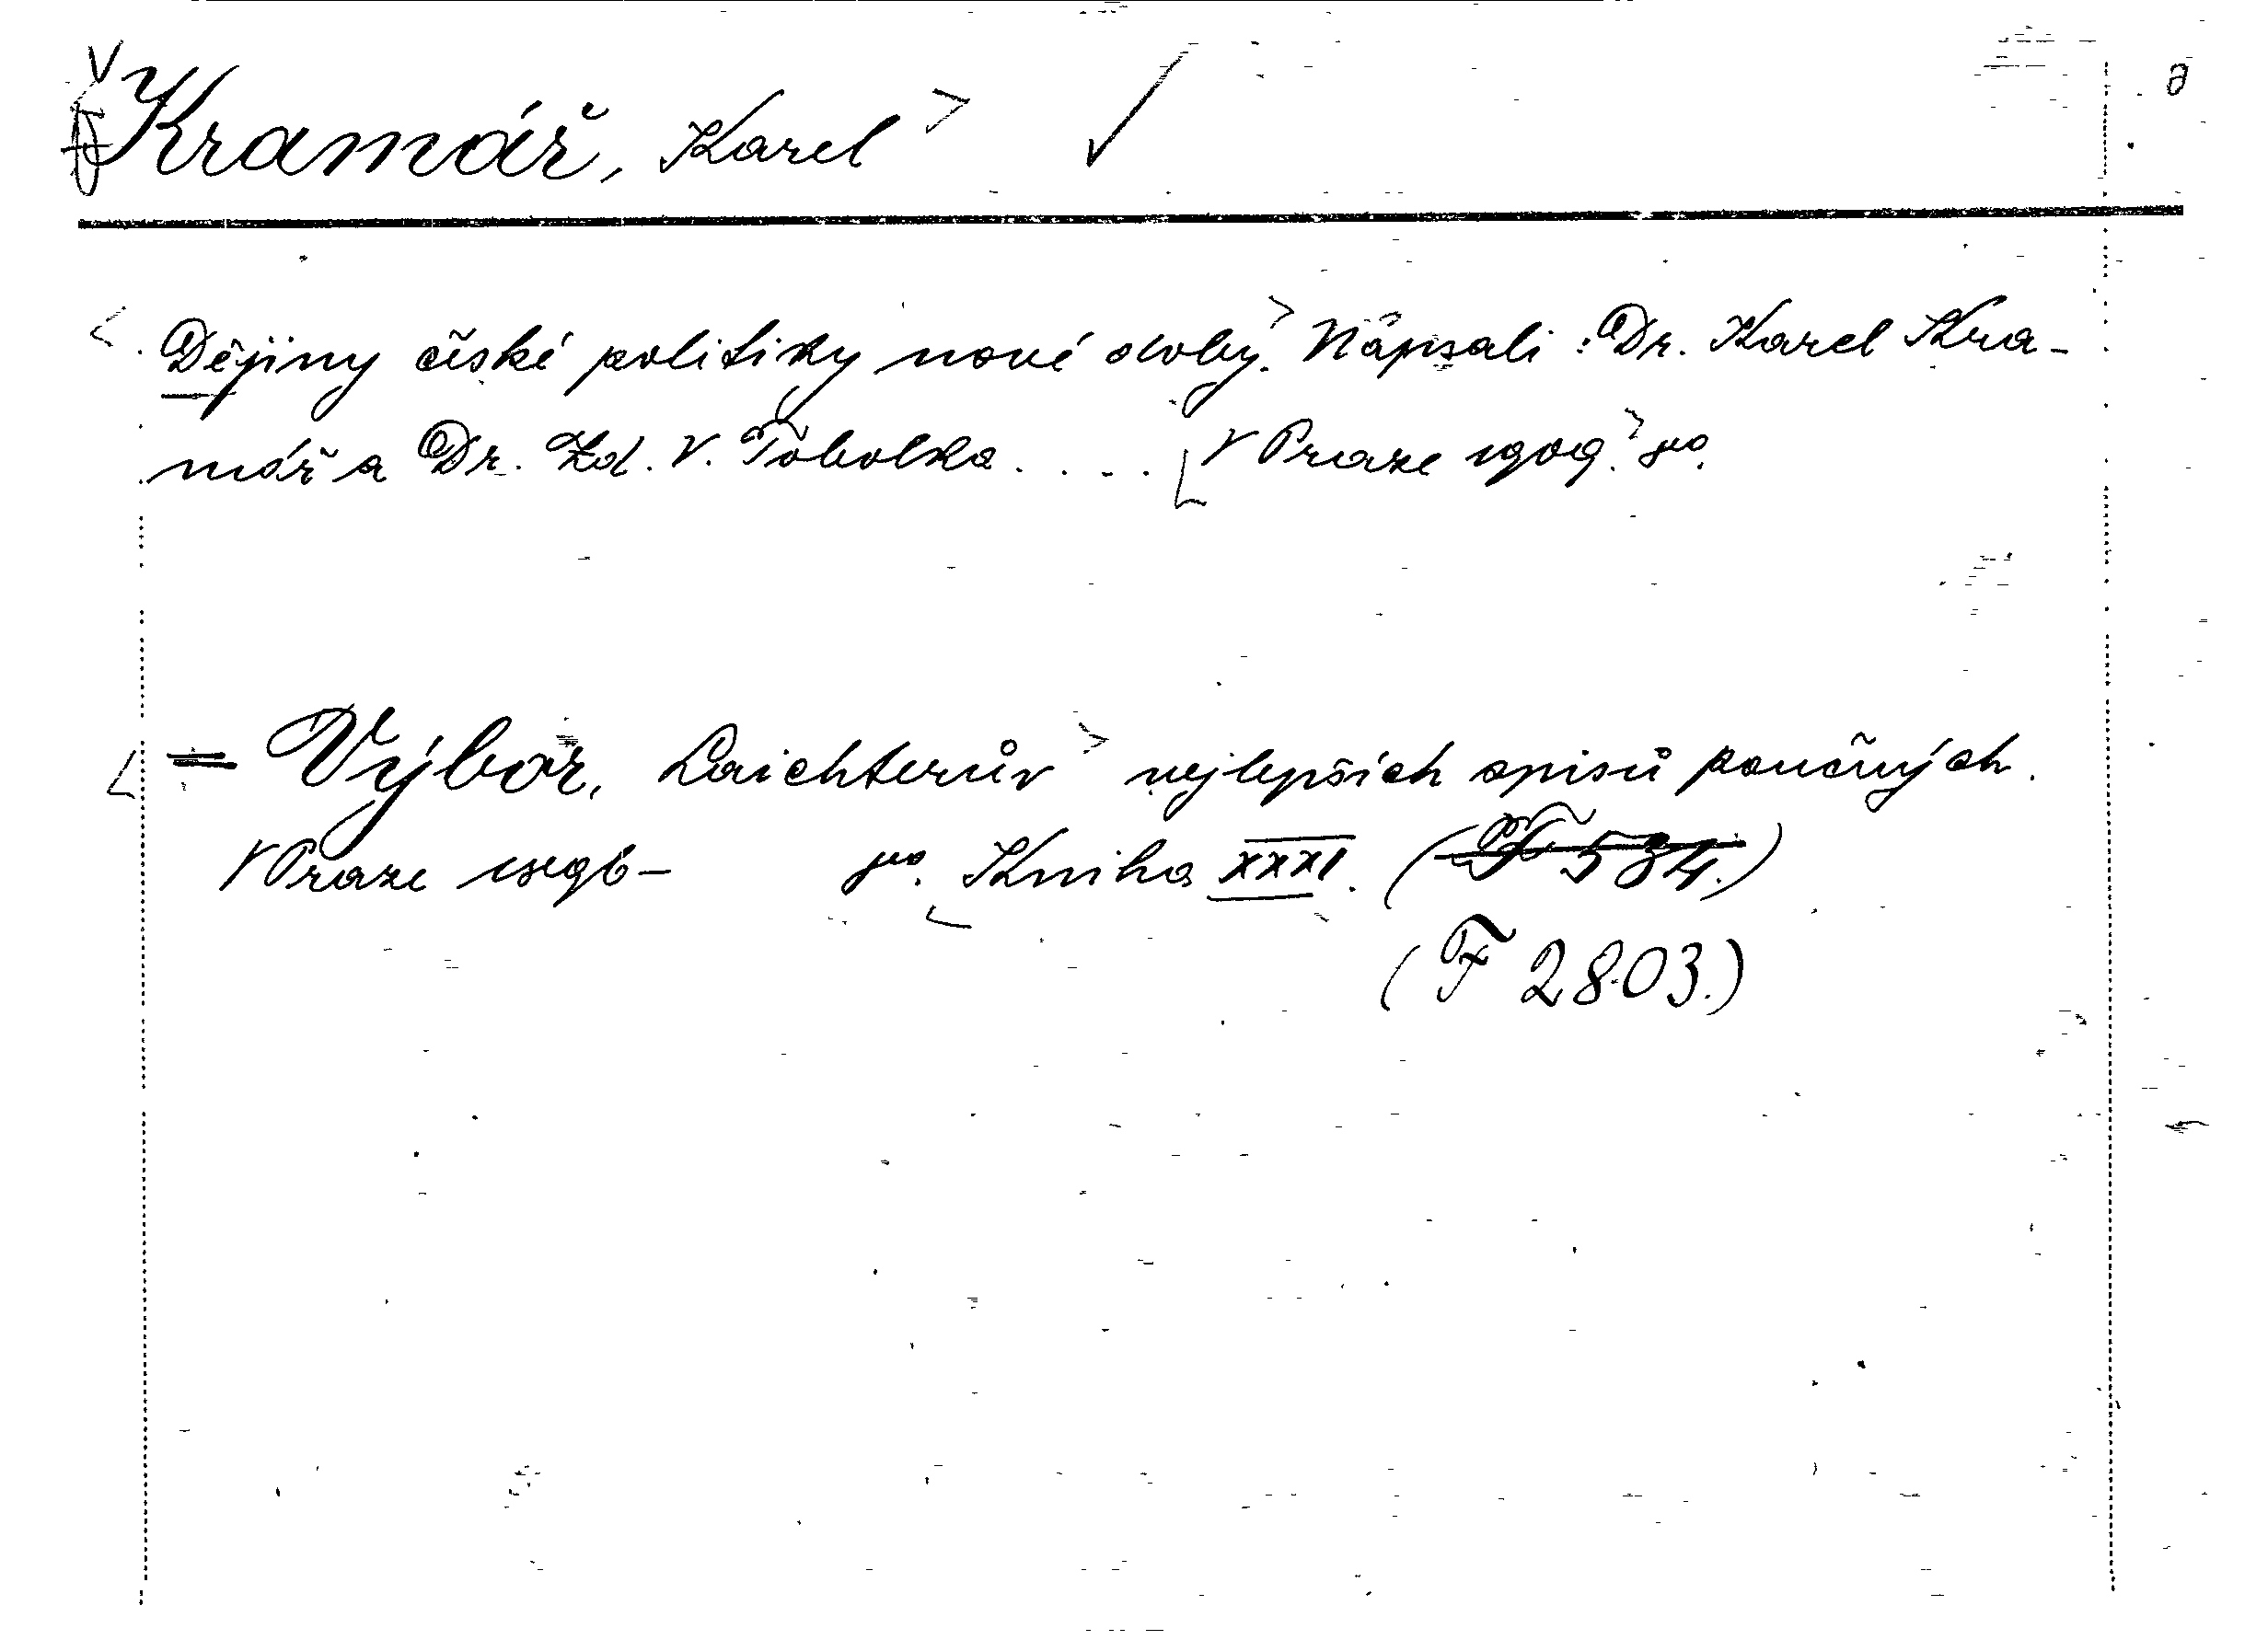 Kramář, Karel
Dějiny české politiky nové doby. Napsali: Dr. Karel Kra-
mář a Dr. Zd. V. Tobolka.... V Praze 1909. 8°.
= Výbor, Laichterův nejlepších spisů poučných.
V Praze 1896- 8°. Kniha XXXI. (F 534.)
(F 2803.)